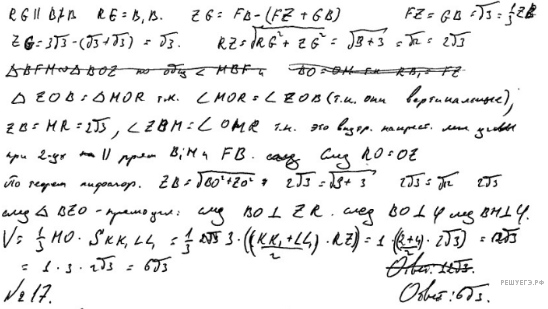 RG ∥ B₁B  RG = B₁B.  ZG = FB − (FZ + GB)  FZ = GB = √3 = 1/3 ZB
ZG = 3√3 − (√3 + √3) = √3.  RZ = √(RG² + ZG²) = √(9+3) = √12 = 2√3
△BFM ∾ △BOZ по общ ∠ MBF и  BO = OM т.к. RB₁ = FZ
△ ZOB = △ MOR т.к. ∠MOR = ∠ZOB (т.к. они вертикальные),
ZB = MR = 2√3, ∠ZBM = ∠OMR т.к. это внутр. накрест. леж углы
при 2-ух ∥ прям B₁M и FB. след RO = OZ
По теорем пифагор. ZB = √(BO² + ZO²)  2√3 = √(9+3)  2√3 = √12  2√3
след △ BZO - прямоугол: след BO ⊥ ZR. след BO ⊥ φ след BM ⊥ φ.
V = 1/3 MO · S KK₁LL₁ = 1/3 · 3 · ((KK₁ + LL₁)/2 · RZ) = 1 · (2+4)/2 · 2√3) =
= 1 · 3 · 2√3 = 6√3  Ответ: 12√3.
№217.  Ответ: 6√3.
РЕШУЕГЭ.РФ